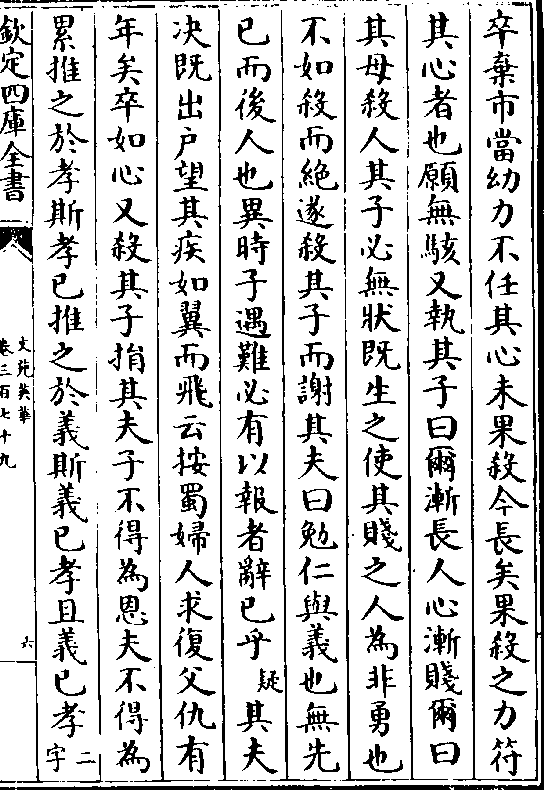 卒棄市當幼力不任其心未果殺今長矣果殺之力符
其心者也願無駭又執其子曰爾漸長人心漸賤爾曰
其母殺人其子必無狀既生之使其賤之人為非勇也
不如殺而絕遂殺其子而謝其夫曰勉仁與義也無先
已而後人也異時子遇難必有以報者辭已乎疑其夫
决既出户望其疾如翼而飛云按蜀婦人求復父仇有
年矣卒如心又殺其子捐其夫子不得為恩夫不得為
累推之於孝斯孝已推之於義斯義已孝且義已孝二字
欽定四庫全書
文苑英華
卷三百七十九
六